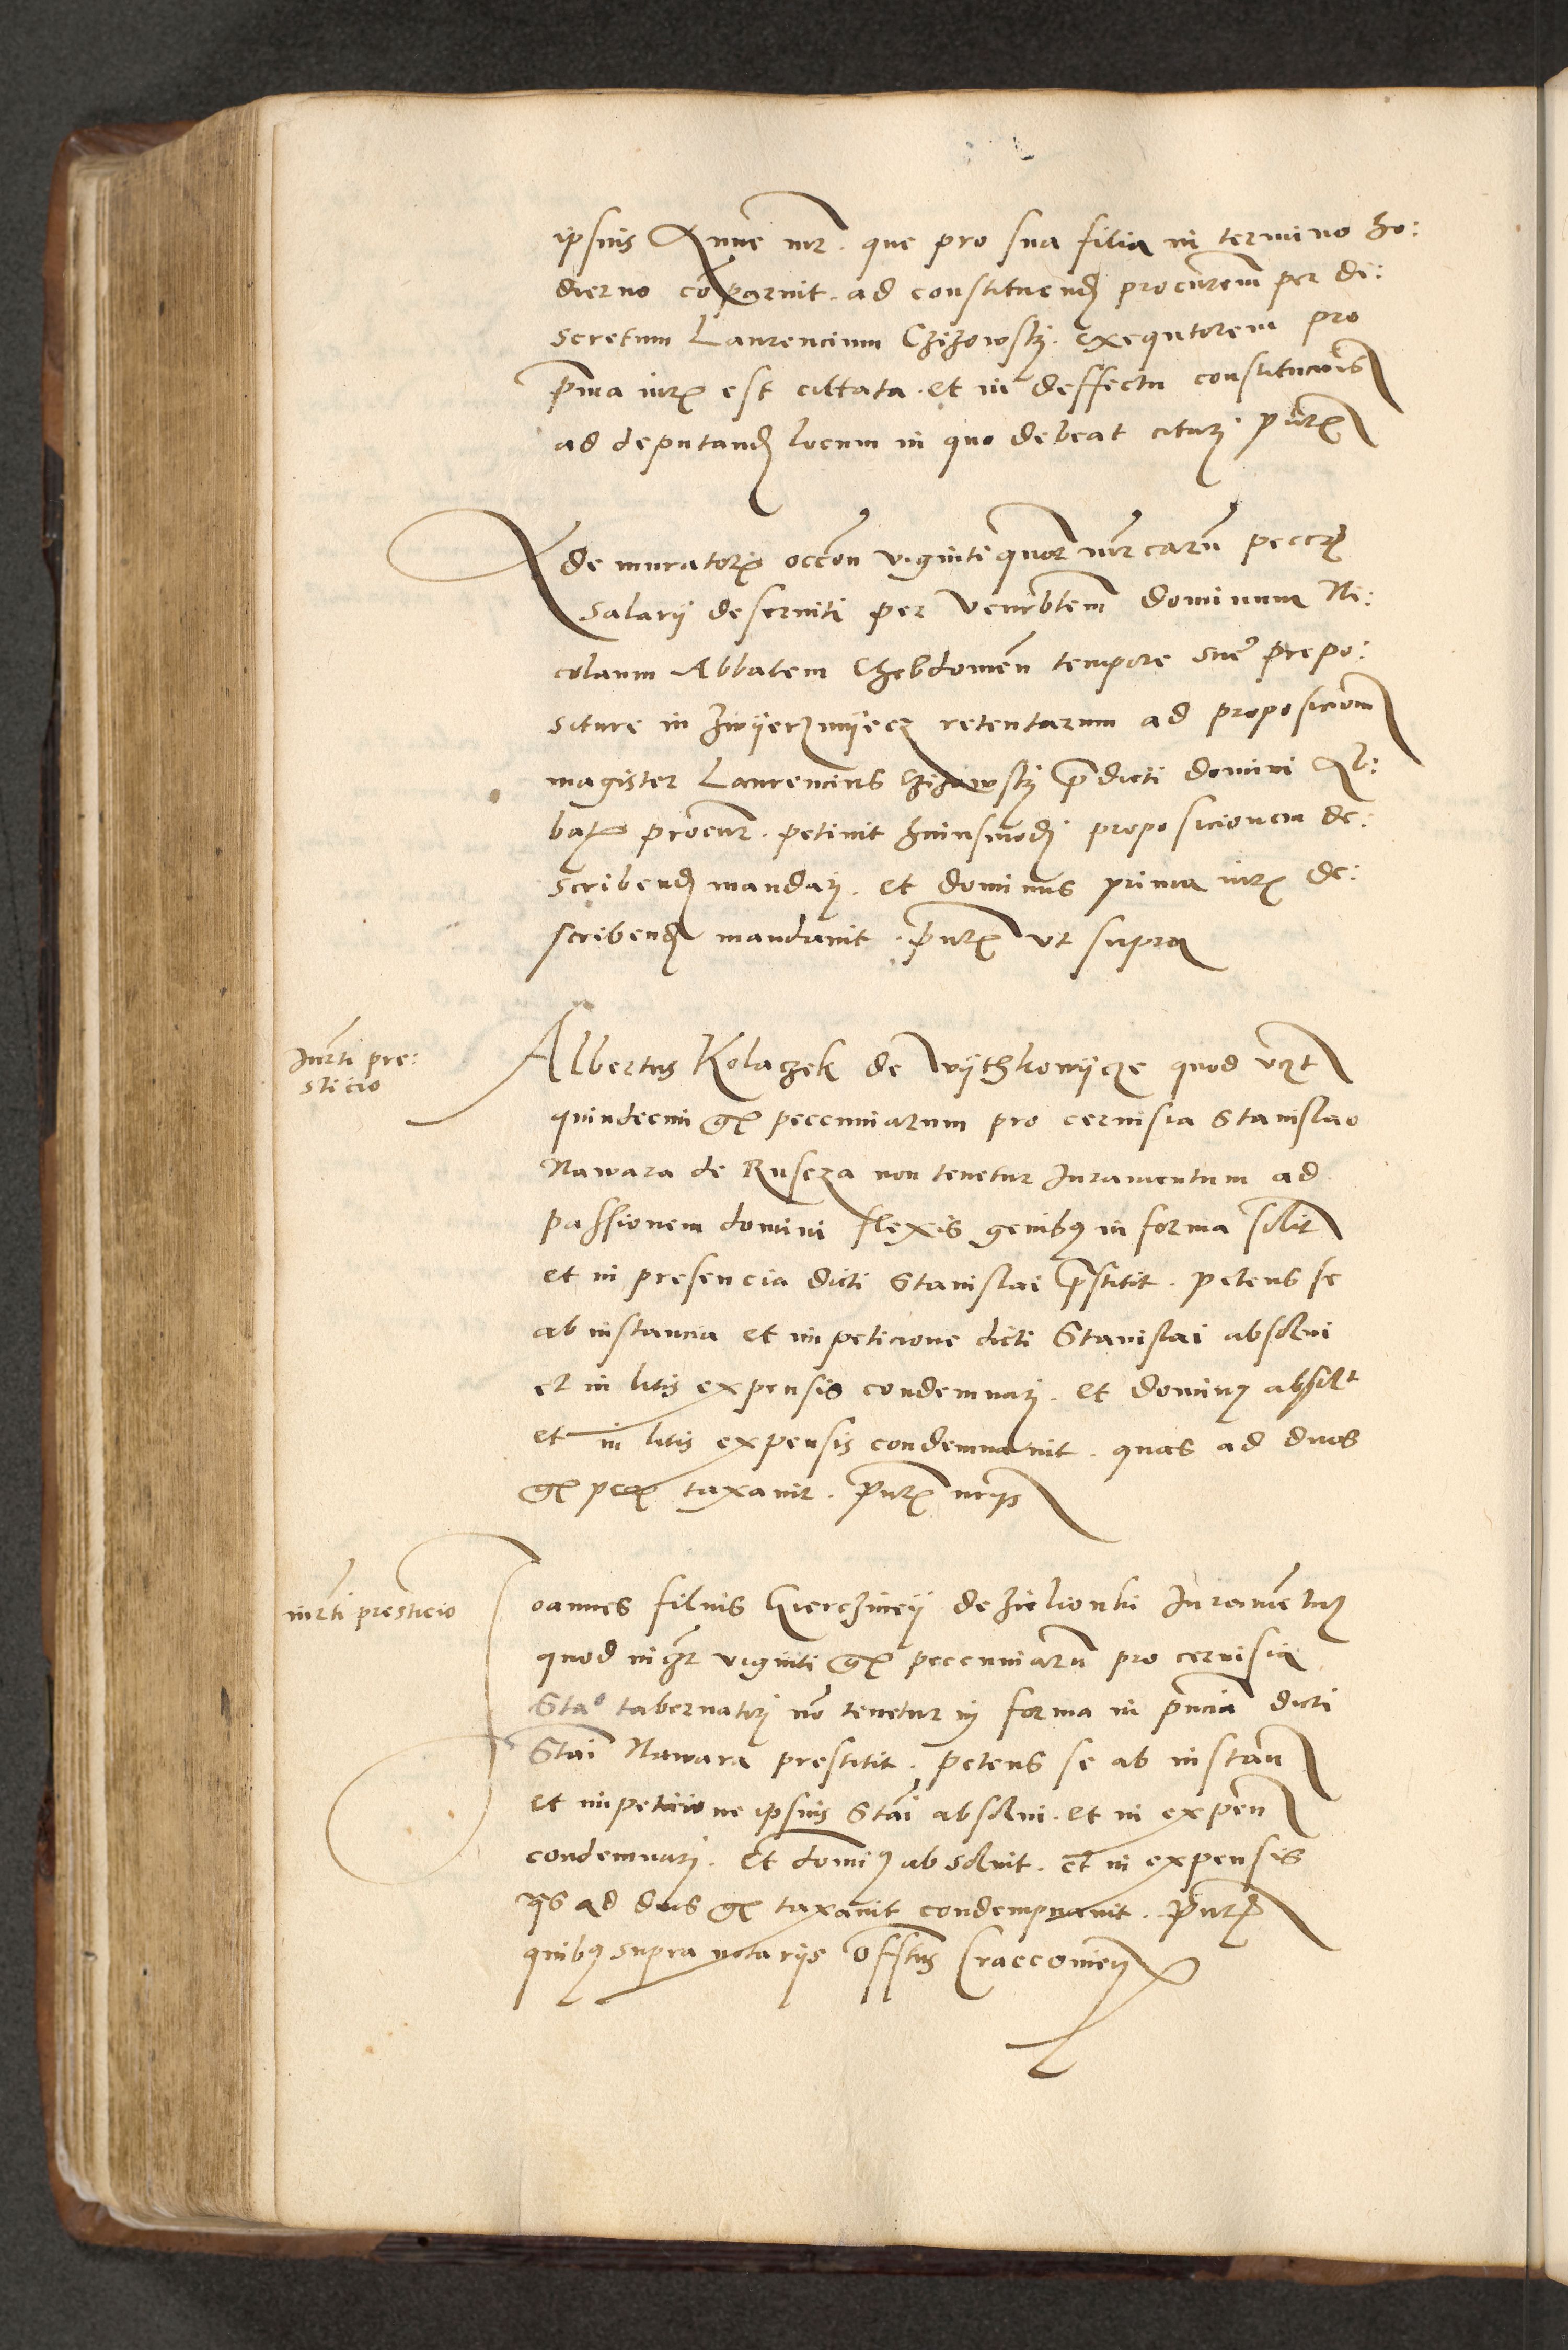 ipsius Anne mr̄. que pro sua filia in termino ho:
dierno cōparuit. ad constituend procuretm̄ per di:
scretum Laurencium Chizowsky. exequtorem pro
pr̄ma iurς est cittata. et in deffectu constitucōnis
ad deputand locum in quo debeat citari. pntς
de muratorς occōn viginti quor mrcarū pecc
salarij deserviti per venerbtem̄ dominum Ni:
colaum Abbatem Chebdomēn tempore sue prepo:
siture in Zwyerzinyecz retentarum ad proposicionem
magister Laurencius Chizowsky prdicti domini Ab:
batς procur. petiuit huiusmodi proposicionem de:
scribend mandari. et dominus prima iurς de:
scribend mandauit. pntς vt supra
Iurti pre:
sticio
Albertus Kolaczek de Wythkowycze quod
quindecim gς peccuniarum pro ceruisia Stanislao
Nawara de Ruscza non tenetur Iuramentum ad
passionem domini flexis genibꝫ in forma solit
et in presencia dicti Stanislai prstitit. petens se
ab instancia et impeticione dicti Stanislai absolui
et in litis expensis condemnari. et dominꝫ absolt
et in litis expensis condemnauit. quas ad duos
gς pecς taxauit. pntς
iurti presticio
Ioannes filius de Zielionki Iuramētuꝫ
quod viginti gς peccuniarū pro ceruisia
Stao tabernatori nō tenetur in forma in pn̄cia dicti
Stai Nawara prestitit. petens se ab instan
et impeticione ipsius Stai absolui. et in expen
condemnari. Et domiꝫ absoluit. et in expensis
qs ad duos gς taxauit condempnauit. pntς
quibꝫ supra notarijs offitus Craccouien